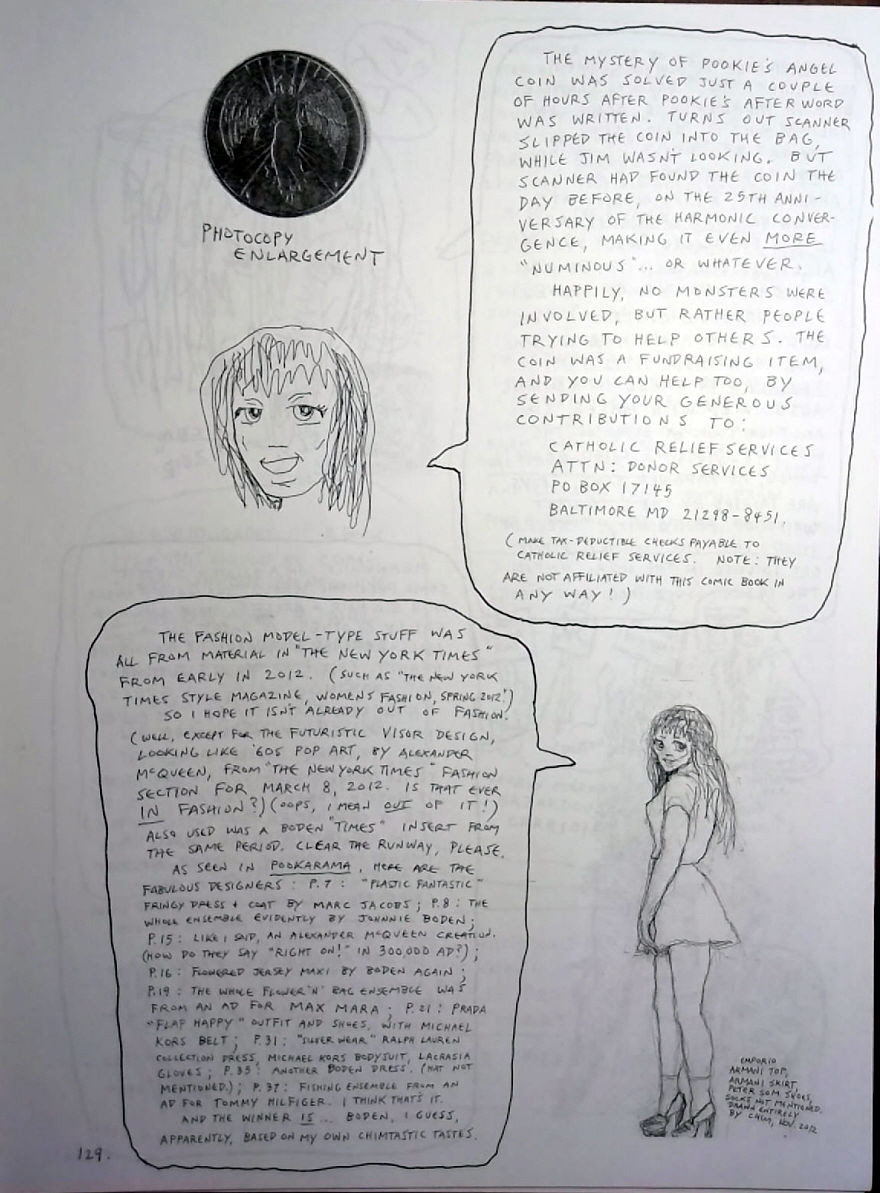 PHOTOCOPY
ENLARGEMENT
THE MYSTERY OF POOKIE'S ANGEL
COIN WAS SOLVED JUST A COUPLE
OF HOURS AFTER POOKIE'S AFTER WORD
WAS WRITTEN. TURNS OUT SCANNER
SLIPPED THE COIN INTO THE BAG,
WHILE JIM WASN'T LOOKING. BUT
SCANNER HAD FOUND THE COIN THE
DAY BEFORE, ON THE 25TH ANNI-
VERSARY OF THE HARMONIC CONVER-
GENCE, MAKING IT EVEN MORE
"NUMINOUS"... OR WHATEVER.
HAPPILY, NO MONSTERS WERE
INVOLVED, BUT RATHER PEOPLE
TRYING TO HELP OTHERS. THE
COIN WAS A FUNDRAISING ITEM,
AND YOU CAN HELP TOO, BY
SENDING YOUR GENEROUS
CONTRIBUTIONS TO:
CATHOLIC RELIEF SERVICES
ATTN: DONOR SERVICES
PO BOX 17145
BALTIMORE MD 21298-8451.
(MAKE TAX-DEDUCTIBLE CHECKS PAYABLE TO
CATHOLIC RELIEF SERVICES. NOTE: THEY
ARE NOT AFFILIATED WITH THIS COMIC BOOK IN
ANY WAY!)
THE FASHION MODEL-TYPE STUFF WAS
ALL FROM MATERIAL IN "THE NEW YORK TIMES"
FROM EARLY IN 2012. (SUCH AS "THE NEW YORK
TIMES STYLE MAGAZINE, WOMENS FASHION, SPRING 2012.")
SO I HOPE IT ISN'T ALREADY OUT OF FASHION.
(WELL, EXCEPT FOR THE FUTURISTIC VISOR DESIGN,
LOOKING LIKE '60S POP ART, BY ALEXANDER
McQUEEN, FROM "THE NEW YORK TIMES" FASHION
SECTION FOR MARCH 8, 2012. IS THAT EVER
IN FASHION?) (OOPS, I MEAN OUT OF IT!)
ALSO USED WAS A BODEN "TIMES" INSERT FROM
THE SAME PERIOD. CLEAR THE RUNWAY, PLEASE.
AS SEEN IN POOKARAMA, HERE ARE THE
FABULOUS DESIGNERS: P.7: "PLASTIC FANTASTIC"
FRINGY DRESS + COAT BY MARC JACOBS; P.8: THE
WHOLE ENSEMBLE EVIDENTLY BY JOHNNIE BODEN;
P.15: LIKE I SAID, AN ALEXANDER McQUEEN CREATION.
(HOW DO THEY SAY "RIGHT ON!" IN 300,000 AD?);
P.16: FLOWERED JERSEY MAXI BY BODEN AGAIN;
P.19: THE WHOLE FLOWER 'N' BAG ENSEMBLE WAS
FROM AN AD FOR MAX MARA; P.21: PRADA
"FLAP HAPPY" OUTFIT AND SHOES, WITH MICHAEL
KORS BELT; P.31: RALPH LAUREN
COLLECTION DRESS, MICHAEL KORS BODYSUIT, LACRASIA
GLOVES; P.35: ANOTHER BODEN DRESS. (HAT NOT
MENTIONED.); P.37: FISHING ENSEMBLE FROM AN
AD FOR TOMMY HILFIGER. I THINK THAT'S IT.
AND THE WINNER IS... BODEN, I GUESS,
APPARENTLY, BASED ON MY OWN CHIMTASTIC TASTES.
EMPORIO
ARMANI TOP,
ARMANI SKIRT,
PETER SOM SHOES,
SOCKS NOT MENTIONED.
DRAWN ENTIRELY
BY CHIM, NOV. 2012
129.